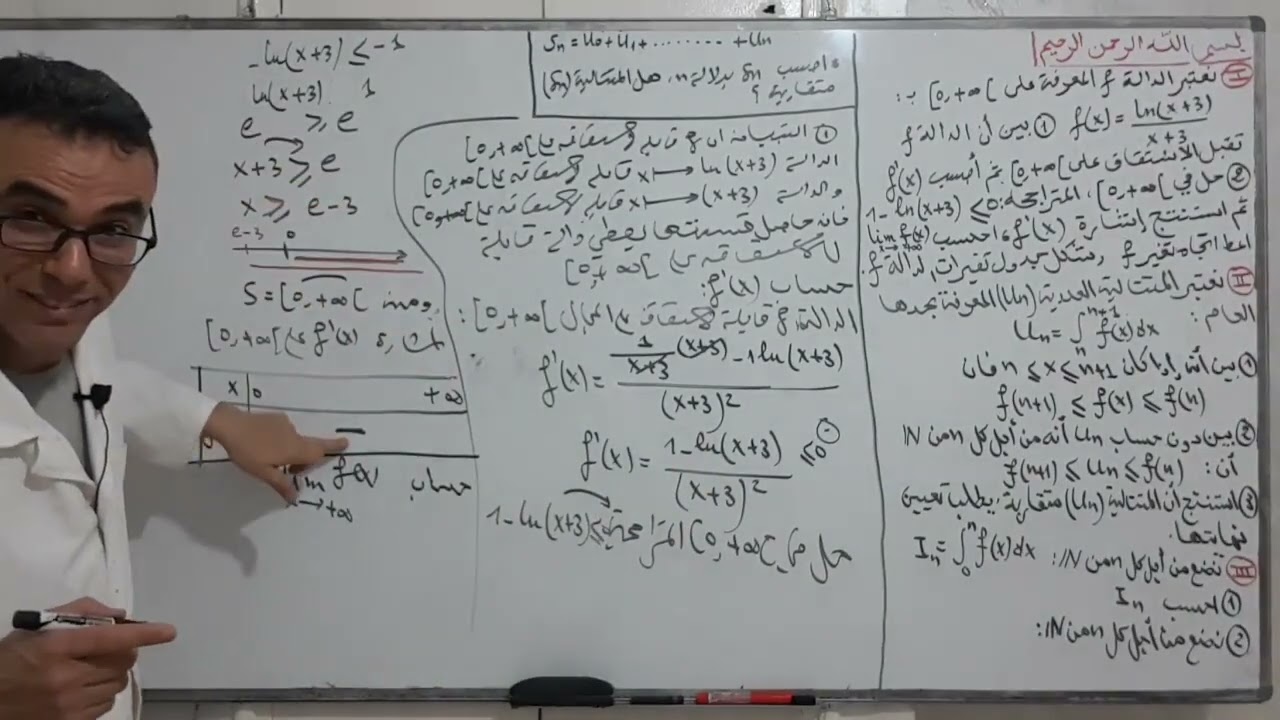 بسم الله الرحمن الرحيم
I نعتبر الدالة f المعرفة على ]0,+∞] بـ:
f(x) = ln(x+3)/(x+3) ① بين أن الدالة f
تقبل الاشتقاق على ]0,+∞] ثم أحسب f'(x)
② حل في ]0,+∞], المتراجحة: 1-ln(x+3) ≤ 0
ثم استنتج إشارة f'(x), احسب lim f(x) x→+∞
اعط اتجاه تغير f وشكل جدول تغيرات الدالة f.
II نعتبر المتتالية العددية (Un) المعرفة بحدها
العام: Un = ∫ₙⁿ⁺¹ f(x)dx
① بين أنه إذا كان n ≤ x ≤ n+1 فان
f(n+1) ≤ f(x) ≤ f(n)
② بين دون حساب Un أنه من أجل كل n من IN
أن: f(n+1) ≤ Un ≤ f(n)
③ استنتج أن المتتالية (Un) متقاربة يطلب تعيين
نهايتها.
III نضع من أجل كل n من IN: In = ∫₀ⁿ f(x)dx
① احسب In
② نضع من أجل كل n من IN:
Sn = U0 + U1 + ........ + Un
احسب Sn بدلالة n, هل المتتالية (Sn)
متقاربة ؟
الدالة x ⟼ ln(x+3) قابلة للاشتقاق على ]0,+∞]
والدالة x ⟼ (x+3) قابلة للاشتقاق على ]0,+∞]
حساب f'(x):
الدالة f قابلة للاشتقاق على المجال ]0,+∞]:
f'(x) = (1/(x+3) (x+3) - 1 ln(x+3)) / (x+3)²
f'(x) = (1-ln(x+3)) / (x+3)² ≤ 0
1-ln(x+3) ≤
-ln(x+3) ≤ -1
ln(x+3) 1
e ≥ e
x+3 ≥ e
x ≥ e-3
e-3 0
ومنه S = [0,+∞[
f'(x) على ]0,+∞]
x 0 +∞
−
حساب lim f(x)
x→+∞